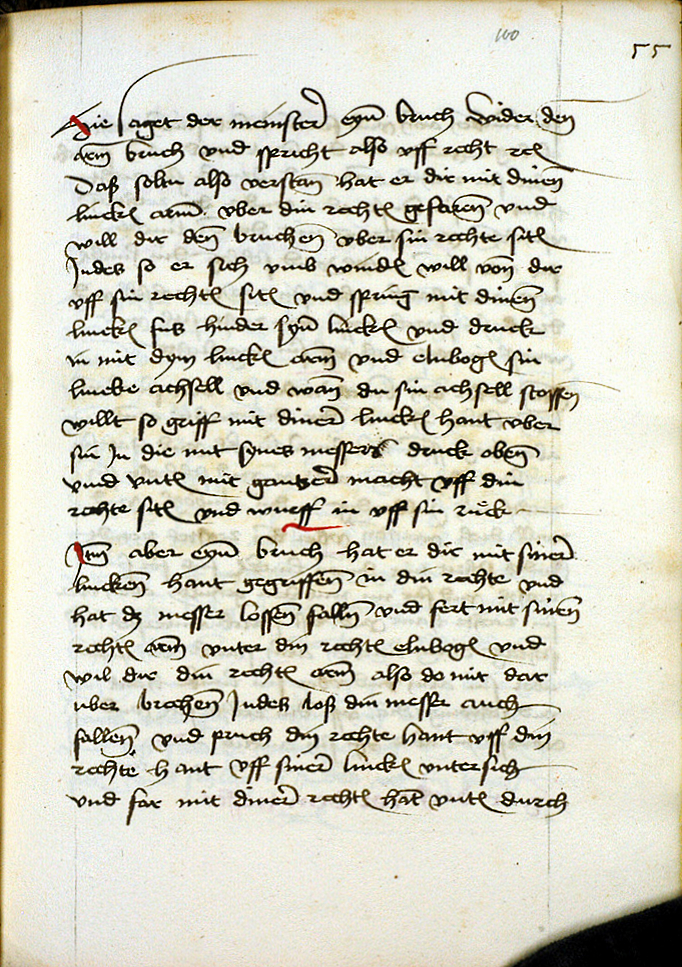 100
55
Hie saget der meinster eyn bruch wider den
arm bruch vnd spricht also vff recht rc
Daß soltu also verstan hat er dir mit dinen
lincken arm vber din rechten gefaren vnd
will dir den bruchen vber sin rechte siten
Indes so er sich vmb winden will von dir
vff sin rechten siten vnd spring mit dinen
lincken fus hinder syn lincken vnd druck
in mit dym lincken arm vnd elnbogen sin
lincke achsell vnd wan du sin achsell stossen
willt so griff mit diner lincken hant vber
sin In die mit synes messers druck oben
vnd vnten mit gantzer macht vff din
rechte siten vnd wurff in vff sin rück
Item aber eyn bruch hat er dir mit siner
lincken hant gegriffen in din rechte vnd
hat dz messer lossen fallen vnd fert mit sinen
rechten arm vnter din rechten elnbogen vnd
wil dir din rechten arm also do mit dar
uber brechen Indes loß din messer auch
fallen vnd pruch din rechte hant vff din
rechte hant vff siner lincken vntersich
vnd far mit diner rechten hant vnten durch